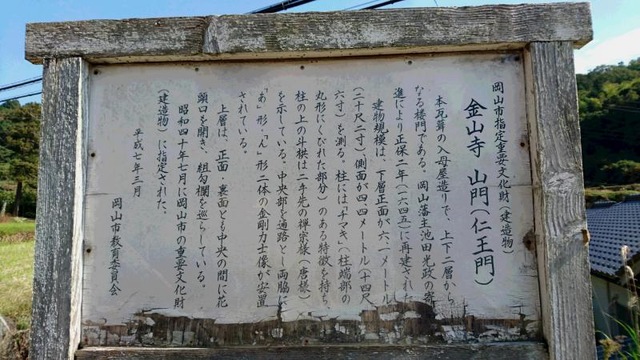 岡山市指定重要文化財(建造物)
金山寺 山門(仁王門)
本瓦葺の入母屋造りで、上下二層から
なる楼門である。岡山藩主池田光政の寄
進により正保二年(一六四五)に再建され
建物規模は、下層正面が六.一メートル
(二十尺二寸)側面が四.四メートル(十四尺
六寸)を測る。柱には「チマキ」(柱端部の
丸形にくびれた部分)のある特徴を持ち
柱の上の斗栱は二手先の禅宗様(唐様)
を示している。中央部を通路とし両脇に
「あ」形・「ん」形二体の金剛力士像が安置
されている。
上層は、正面・裏面とも中央の間に花
頭口を開き、組勾欄を巡らしている。
昭和四十年七月に岡山市の重要文化財
(建造物)に指定された。
平成七年三月
岡山市教育委員会